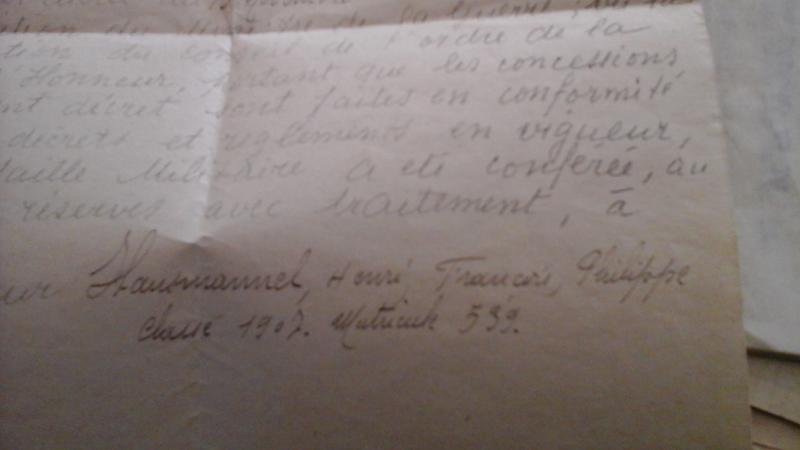 du Ministre de la Guerre
tion du conseil de l'ordre de la
d'Honneur, portant que les concessions
nt décret sont faites en conformité
décrets et règlements en vigueur,
daille Militaire a été conférée, au
réserves avec traitement, à
eur Hausmannel, Henri, François, Philippe
classe 1907. Matricule 539.